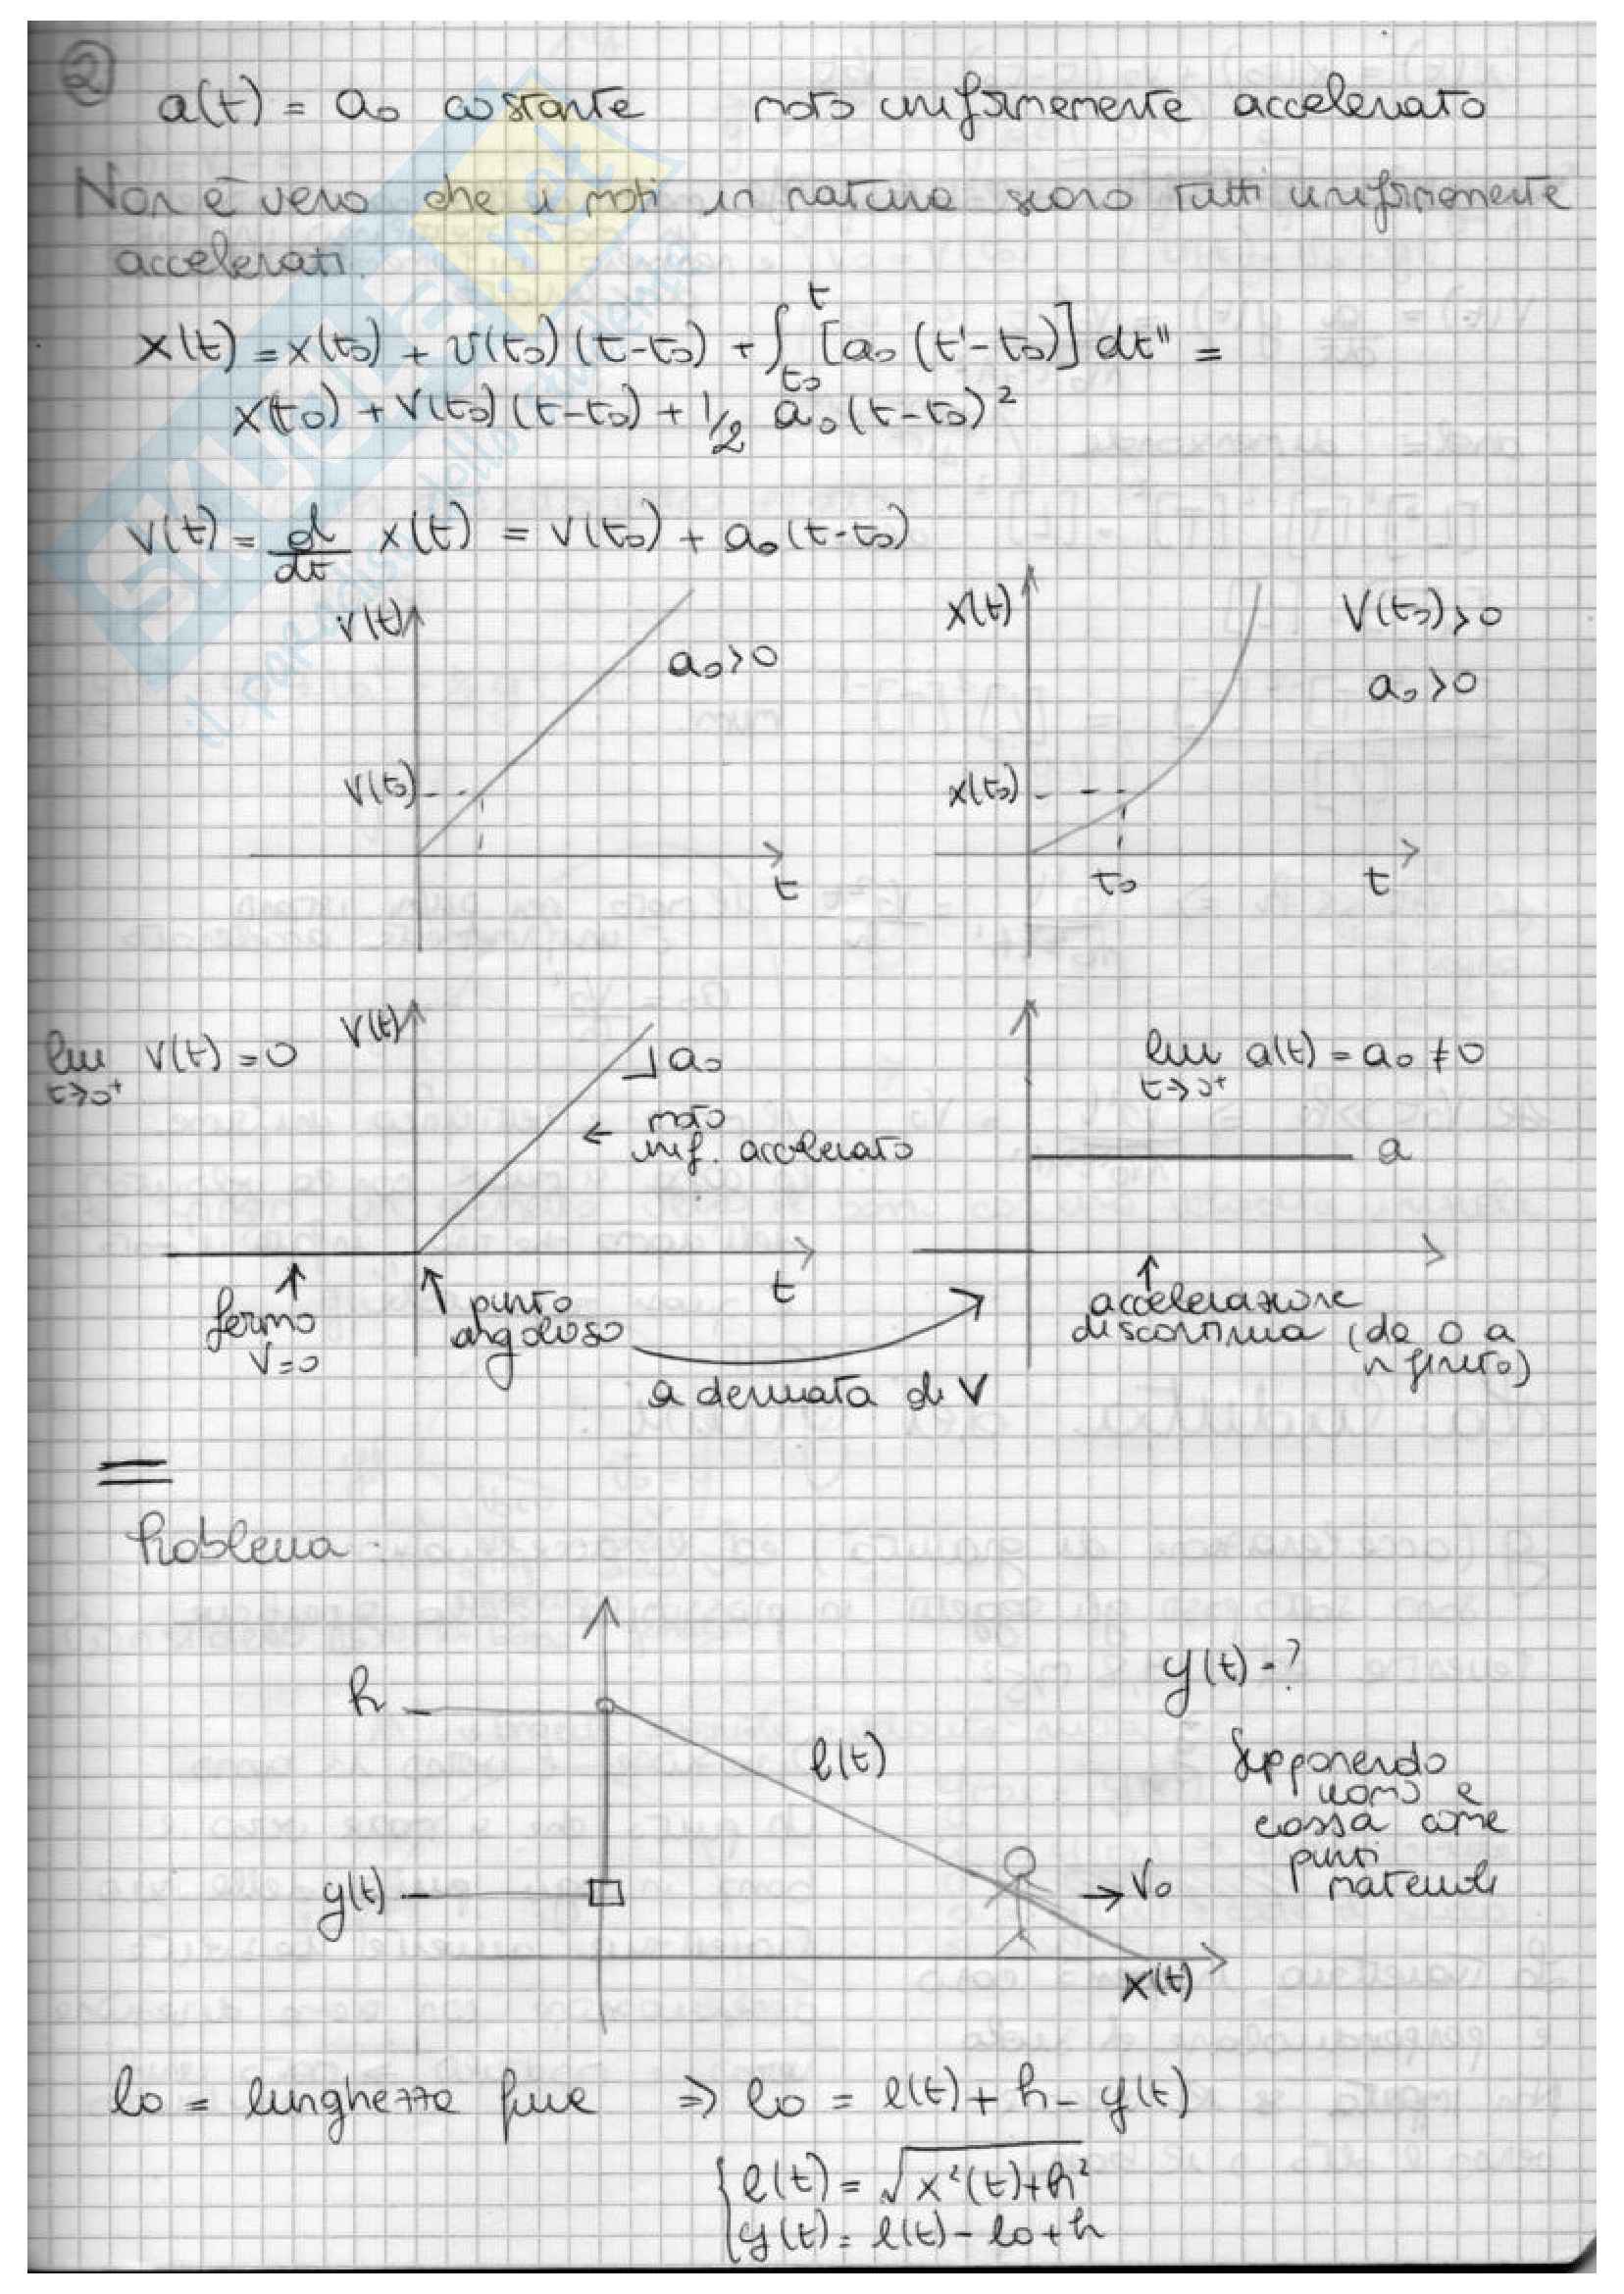 2
a(t) = a₀ costante moto uniformemente accelerato
Non è vero che i moti in natura siano tutti uniformemente
accelerati.
x(t) = x(t₀) + v(t₀)(t-t₀) + ∫_{t₀}^{t} [a₀(t'-t₀)] dt'' =
x(t₀) + v(t₀)(t-t₀) + 1/2 a₀(t-t₀)²
v(t) = d/dt x(t) = v(t₀) + a₀(t-t₀)
v(t)
a₀>0
v(t₀)
t
x(t)
V(t₀)>0
a₀>0
x(t₀)
t₀
t
lim t→0⁺ v(t) = 0
v(t)
a₀
← moto
unif. accelerato
t
↑
fermo
v=0
↑ punto
angoloso
a derivata di v
lim t→0⁺ a(t) = a₀ ≠ 0
a
↑
accelerazione
discontinua (da 0 a
n finito)
Problema.
h
l(t)
y(t)
→ v₀
x(t)
y(t) = ?
Supponendo
uomo e
cassa come
punti
materiali
l₀ = lunghezza fune ⇒ l₀ = l(t) + h - y(t)
{ l(t) = √x²(t)+h²
y(t) = l(t) - l₀ + h
SKUOLA.net
il paradiso dello studente